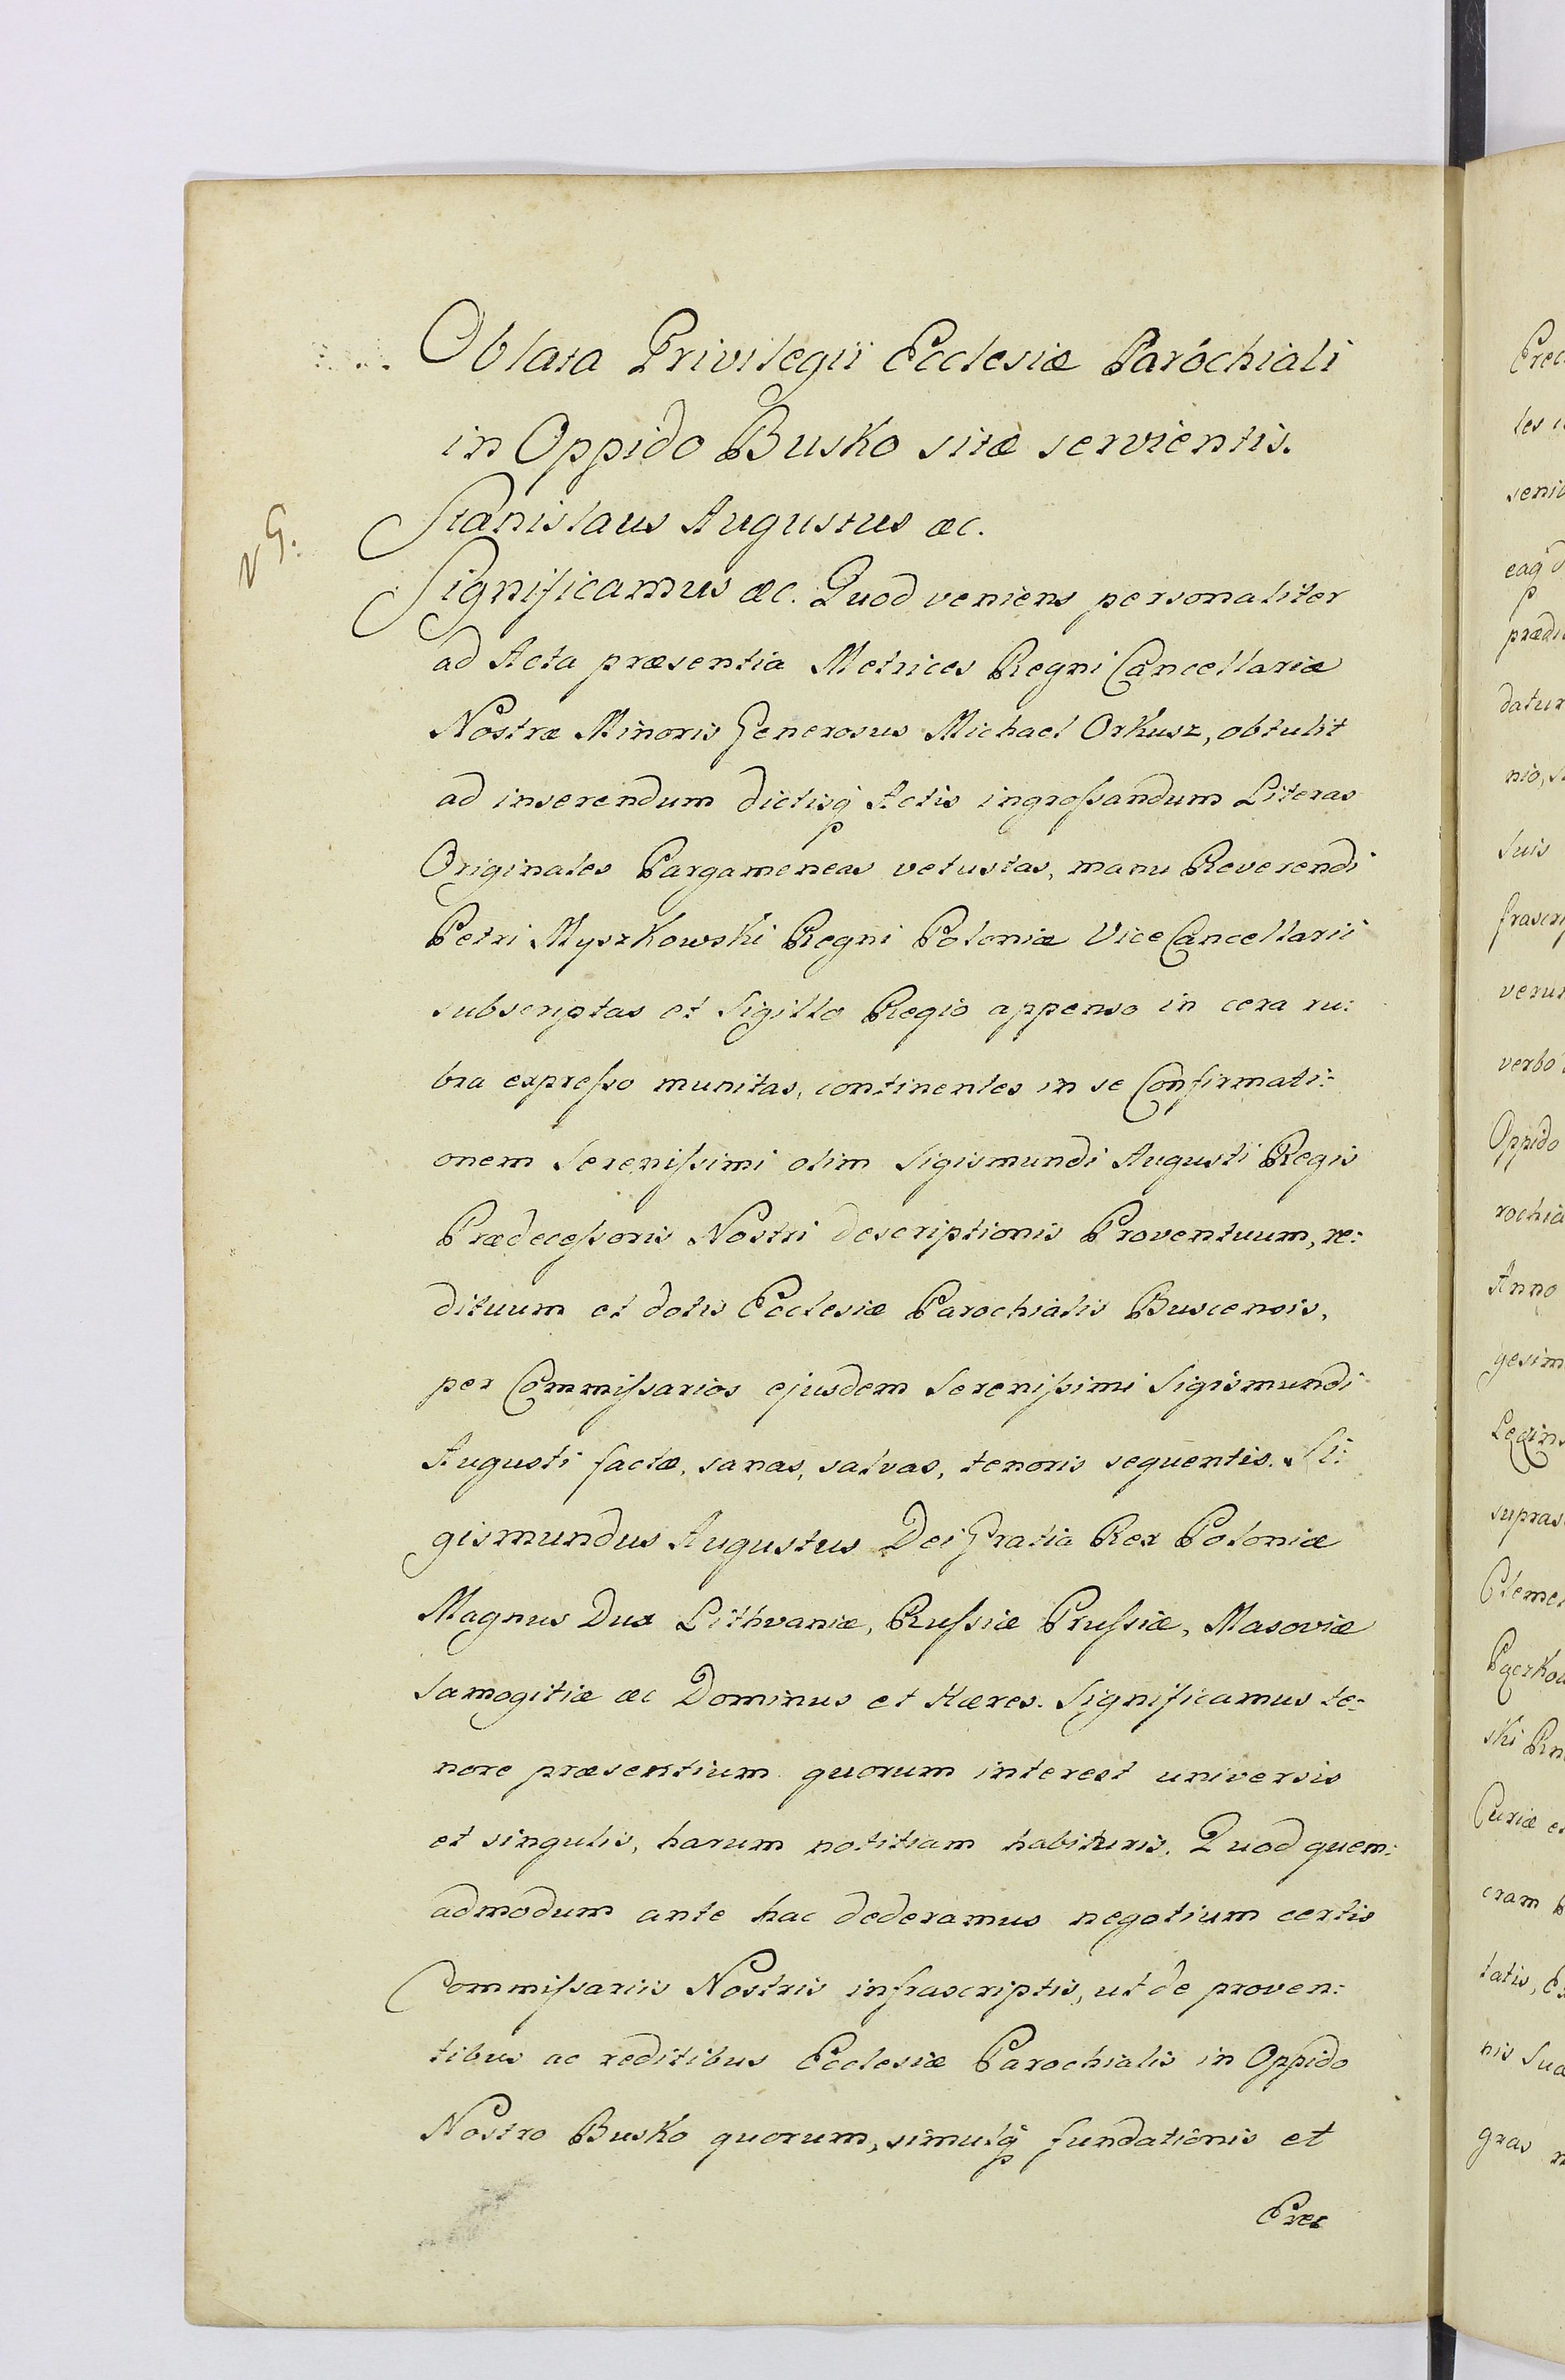 Oblata Privilegii Ecclesiæ Parochiali
in Oppido Busko sitæ servientis.
Stanislaus Augustus &c.
Significamus &c. Quod veniens personaliter
ad Acta præsentia Metrices Regni Cancellariæ
Nostræ Minoris Generosus Michael Orkusz, obtulit
ad inserendum dictisq̃ Actis ingroſsandum Literas
Originales Pargameneas vetustas, manu Reverendi
Petri Myszkowski Regni Poloniæ Vice Cancellarii
subscriptas et Sigillo Regio appenso in cera ru:
bra expreſso munitas, continentes in se Confirmati:
onem Sereniſsimi olim Sigismundi Augusti Regis
Prædeceſsoris Nostri descriptionis Proventuum, re:
dituum et dotis Ecclesiæ Parochialis Buscensis,
per Commiſsarios ejusdem Sereniſsimi Sigismundi
Augusti factæ, sanas, salvas, tenoris sequentis. Si:
gismundus Augustus Dei Gratia Rex Poloniæ
Magnus Dux Lithvaniæ, Ruſsiæ Pruſsiæ, Masoviæ
Samogitiæ &c Dominus et Hæres. Significamus te:
nore præsentium quorum interest universis
et singulis, harum notitiam habituris. Quod quem:
admodum ante hac dederamus negotium certis
Commiſsariis Nostris infrascriptis, ut de proven:
tibus ac reditibus Ecclesiæ Parochialis in Oppido
Nostro Busko quorum, simulq̃ fundationis et
Erec
les
seni
eaq̃
prædi
datur
nio,
suis
frascri
verum
verbo
Oppido
rochia
Anno
gesim
supras
Cleme
ski
Curiæ
cram
tatis,
nis Suæ
gras